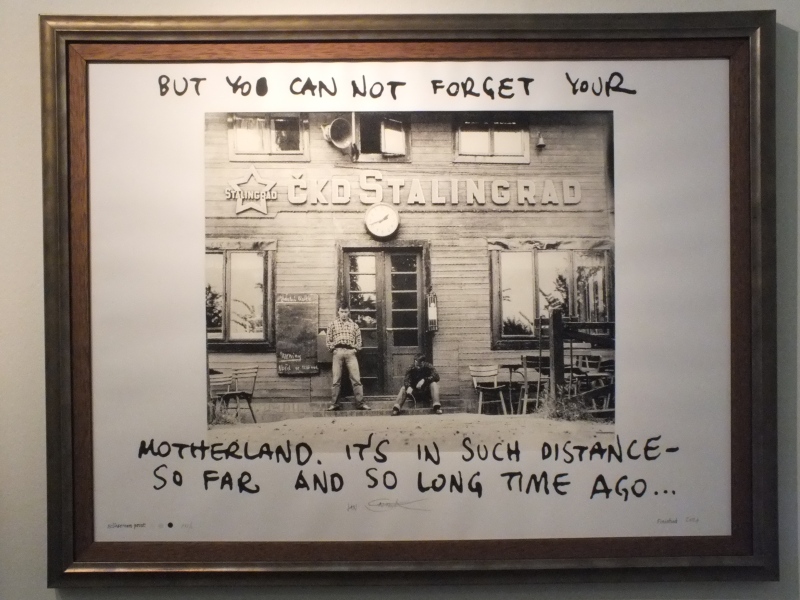 BUT YOU CAN NOT FORGET YOUR
STALINGRAD
ČKD STALINGRAD
MOTHERLAND. IT'S IN SUCH DISTANCE-
SO FAR AND SO LONG TIME AGO...